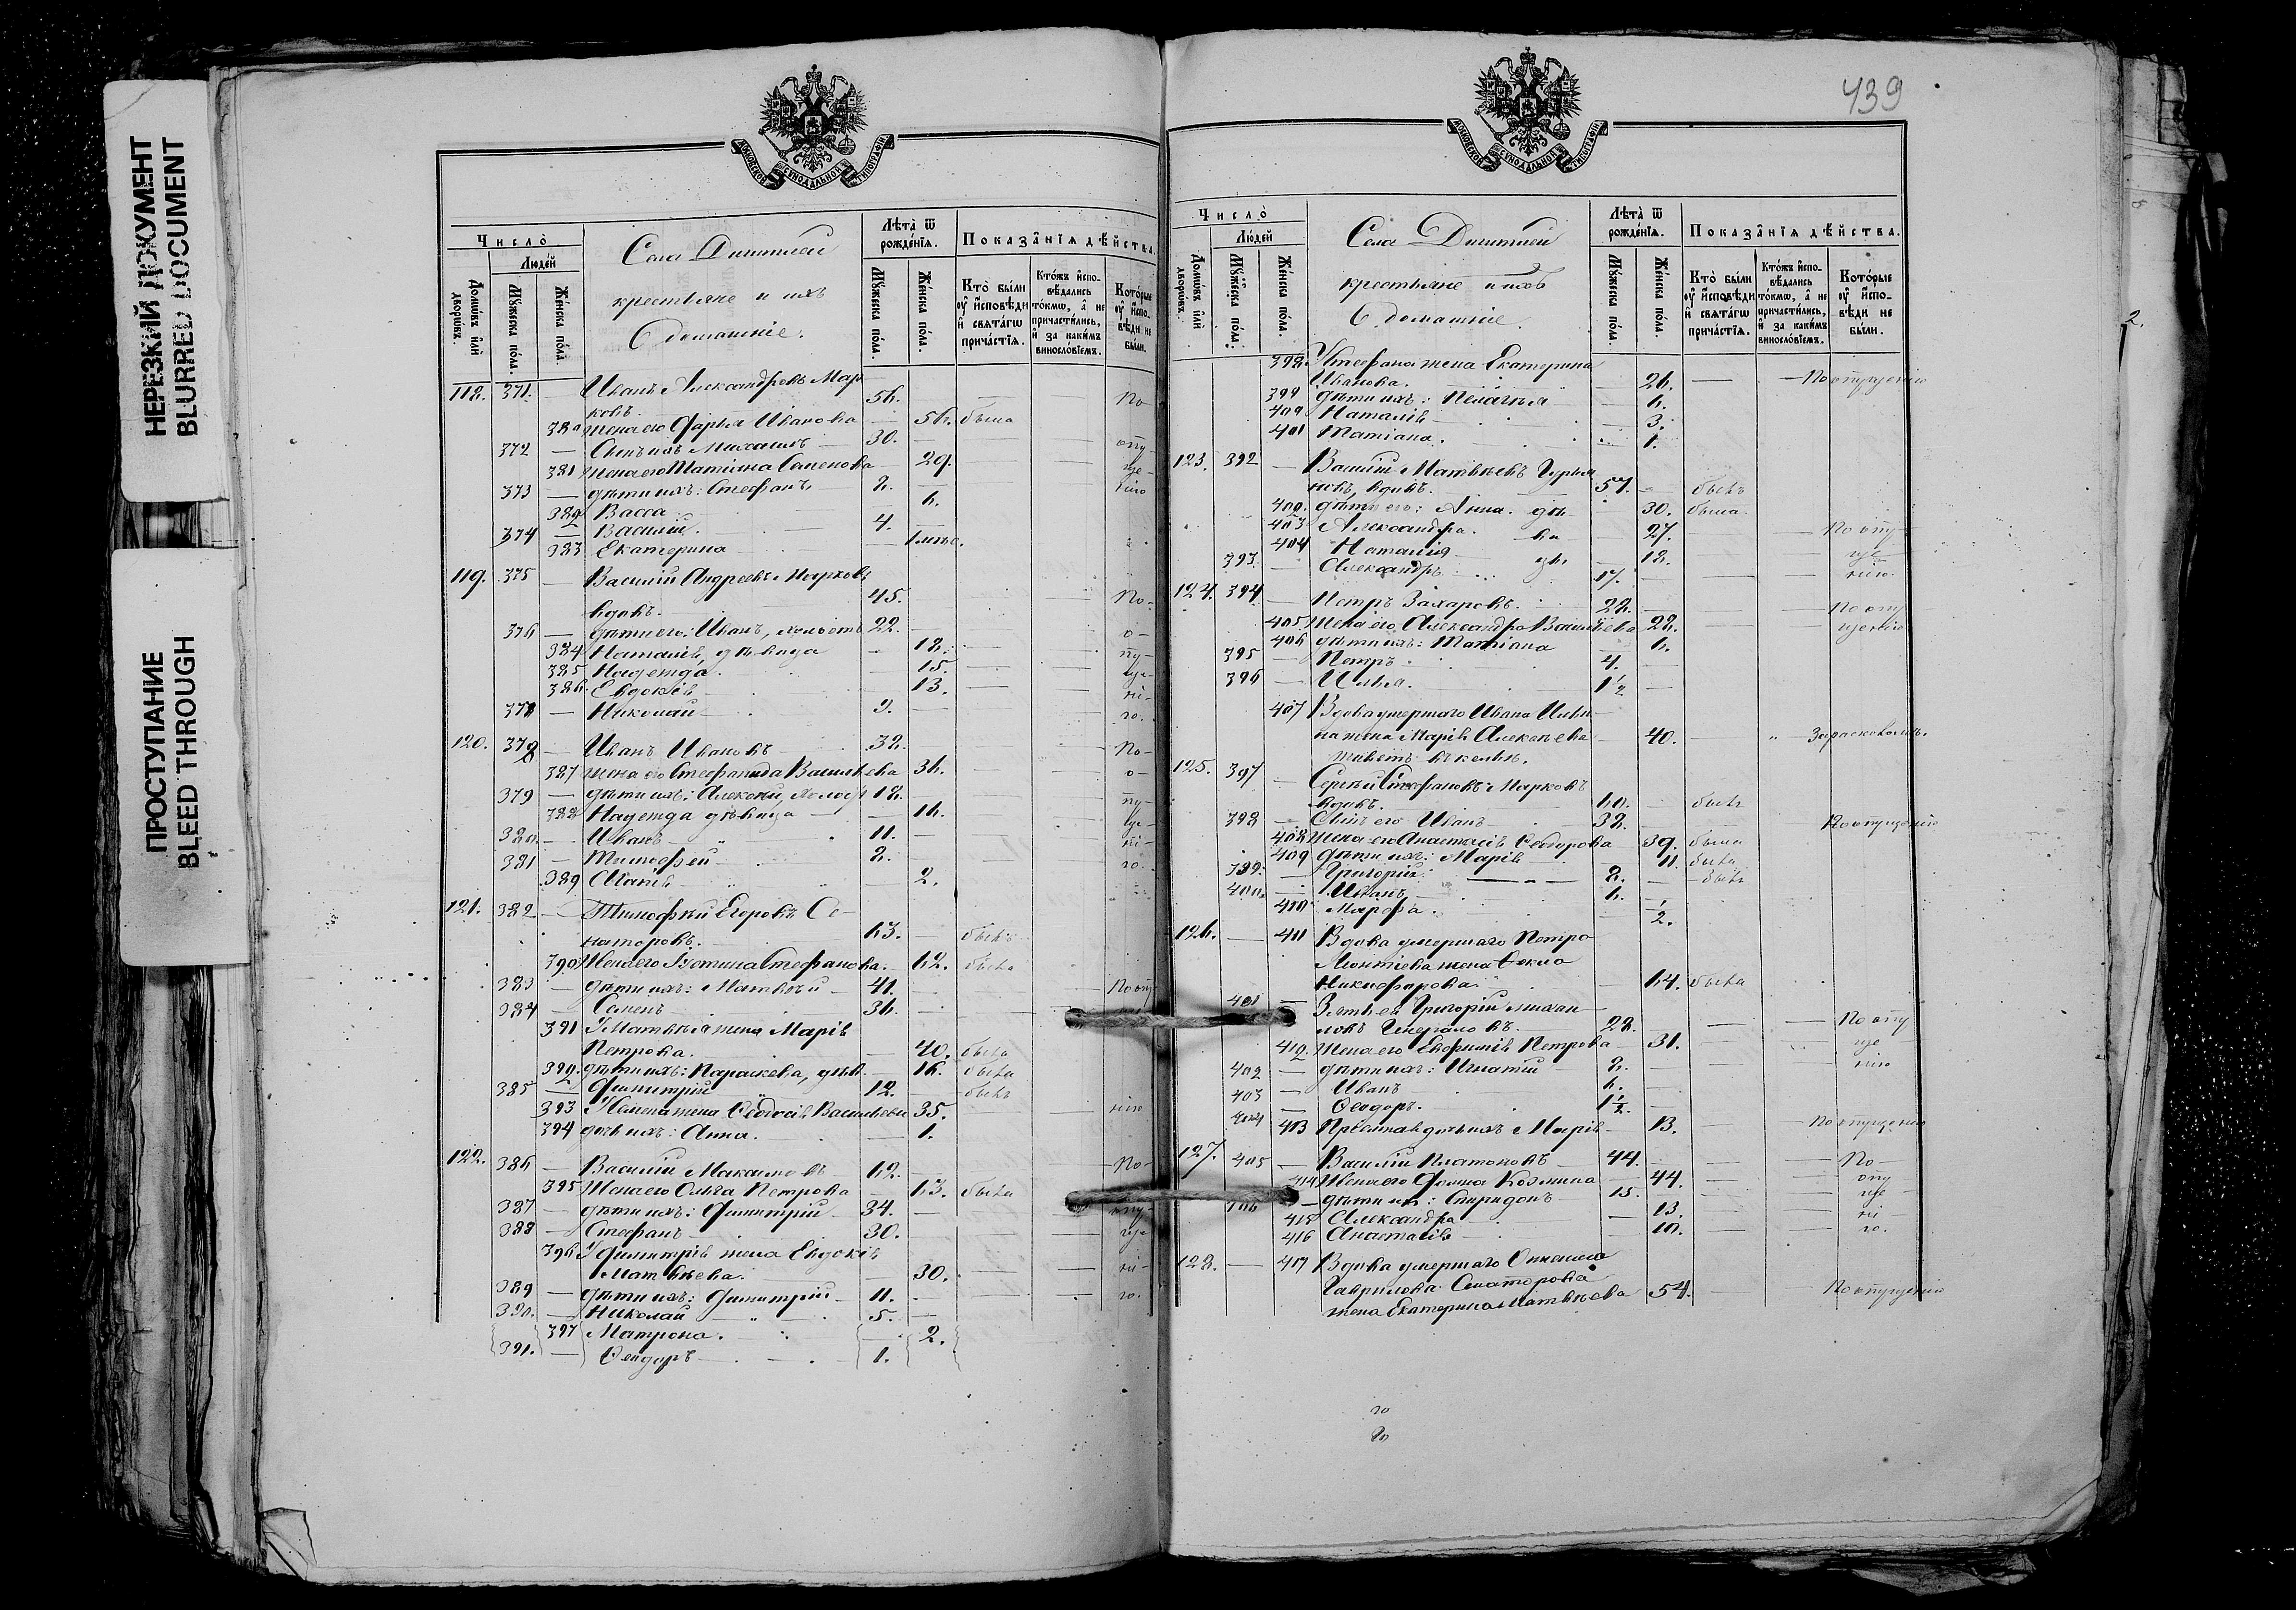 НЕРЕЗКИЙ ДОКУМЕНТ
BLURRED DOCUMENT
ПРОСТУПАНИЕ
BLEED THROUGH
МОСКОВСКОЙ СУНОДАЛЬНОЙ ТИПОГРАФІИ
Число̀
Людей
Домѡвъ или дворѡвъ.
Мꙋжеска пола.
Женска пола.
Села
крестьяне и ихъ
домашніе.
Лѣта̀ ѿ рожденїѧ.
Мꙋжеска пола.
Женска пола.
Показа̂нїѧ дѣйства.
Кто̀ были оу҆ и҆сповѣди и҆ свѧта́гѡ прича́стїѧ.
Кто́жъ и҆спо-вѣдались то́кмѡ, а҆ не причасти́лись, и҆ за каки́мъ винослóвїемъ.
Кото́рые оу҆ и҆спо-вѣди не бы́ли.
118. 371. — Иванъ Александровъ Мар
ковъ. 56. — По
380 жена его Дарья Иванова 56. была
372 — Сынъ ихъ Михаилъ 30. опу
381 жена его Татіана Семенова 29. ще
373 — дѣти ихъ: Стефанъ 8. нію
382 Васса 6.
374 — Василій. 4.
383 Екатерина
119. 375 — Василій Андреевъ Марковъ
вдовъ. 45. По-
376 — дѣти его: Иванъ, холостъ 22. о-
384 Наталія, дѣвица 18. пу-
385 Надежда. 15. ще-
386. Евдокія 13. ні-
377 — Николай 9. ю.
120. 378 — Иванъ Ивановъ 38. По-
387 жена его Стефанида Васильева 36. о-
379 — дѣти ихъ: Алексѣй, холост 18. пу-
388 Надежда дѣвица 16. ще-
380. — Иванъ 11. ні-
381 — Тимофей 8. ю.
389 2.
121. 382 — Тимофей Егоровъ Се-
наторовъ. 63. былъ
390 Жена его Іустина Стефанова. 62. была
383 — дѣти ихъ: Матвѣй 41. По опу
384 — Семенъ 36.
391 У Матвѣя жена Марія
Петрова. 40. была
392. дѣти ихъ: Параскева, дѣв. 16. была
385 — Димитрій 12. былъ
393 У Семена жена Ѳеодосія Васильева 35. нію
394 дочь ихъ: Анна. 1.
122. 386 — Василій Максимовъ 62. По-
395 Жена его Ольга Петрова 63. была
387 — дѣти ихъ: Димитрій 34. опу-
388 — Стефанъ 30. ще-
396 У Димитрія жена Евдокія
Матвѣева. 30. ні-
389 — дѣти ихъ: Димитрій 11. ю.
390. — Николай 5.
397 Матрона. 2.
391. — Ѳеодоръ 1.
439
МОСКОВСКОЙ СУНОДАЛЬНОЙ ТИПОГРАФІИ
Число̀
Людей
Домѡвъ или дворѡвъ.
Мꙋжеска пола.
Женска пола.
Села
крестьяне и ихъ
домашніе.
Лѣта̀ ѿ рожденїѧ.
Мꙋжеска пола.
Женска пола.
Показа̂нїѧ дѣйства.
Кто̀ были оу҆ и҆сповѣди и҆ свѧта́гѡ прича́стїѧ.
Кто́жъ и҆спо-вѣдались то́кмѡ, а҆ не причасти́лись, и҆ за каки́мъ винослóвїемъ.
Кото́рые оу҆ и҆спо-вѣди не бы́ли.
398. У Стефана жена Екатерина
Иванова. 26. — По опущенію
399 дѣти ихъ: Пелагѣя 6.
400 Наталія 3.
401 Татіана. 1.
123. 392 — Василій Матвѣевъ Гурья
новъ, вдовъ. 57. былъ
402. дѣти его: Анна. дѣ 30. была
403 Александра. ви 27. По опу
404 Наталія цы. 18. ще
393. — Александръ 17. нію.
124. 394 — Петръ Захаровъ. 28. По опу
405. Жена его Александра Васильева 28. щенію
406 дѣти ихъ: Татіана 6.
395 — Петръ 4.
396 — Илья. 1½
407 Вдова умершаго Ивана Ильи
на жена Марія Алексѣева 40. За расколомъ.
живетъ въ кельѣ.
125. 397 — Сергѣй Стефановъ Марковъ
вдовъ. 60. былъ
398 — Сынъ его Иванъ 38. По опущенію
408 Жена его Анастасія Ѳеодорова 39. была
409 дѣти ихъ: Марія 11. была
399. — Григорій 8. былъ
400. — Иванъ 6.
410 Марѳа. ½.
126. — 411 Вдова умершаго Петра
Леонтіева жена Ѳекла
Никифорова. 64. была
401 — Зять ея Григорій михаи
ловъ Генераловъ. 28. По опу
412. Жена его Евфимія Петрова 31. ще
402 — дѣти ихъ: Игнатій 8. нію
403 — Иванъ 6.
404 — Ѳеодоръ. 1½.
413 дочь ихъ Марія 13. По опущенію
127. 405 — Василій Платоновъ 44. По
414 Жена его Домна Козмина 44. опу
406 — дѣти их: Спиридонъ 15. ще
415 Александра 13. ні
416 Анастасія 10. ю.
128. — 417 Вдова умершаго
Гаврилова Сенаторова
жена Екатерина Матвѣева 54. По опущенію
2.